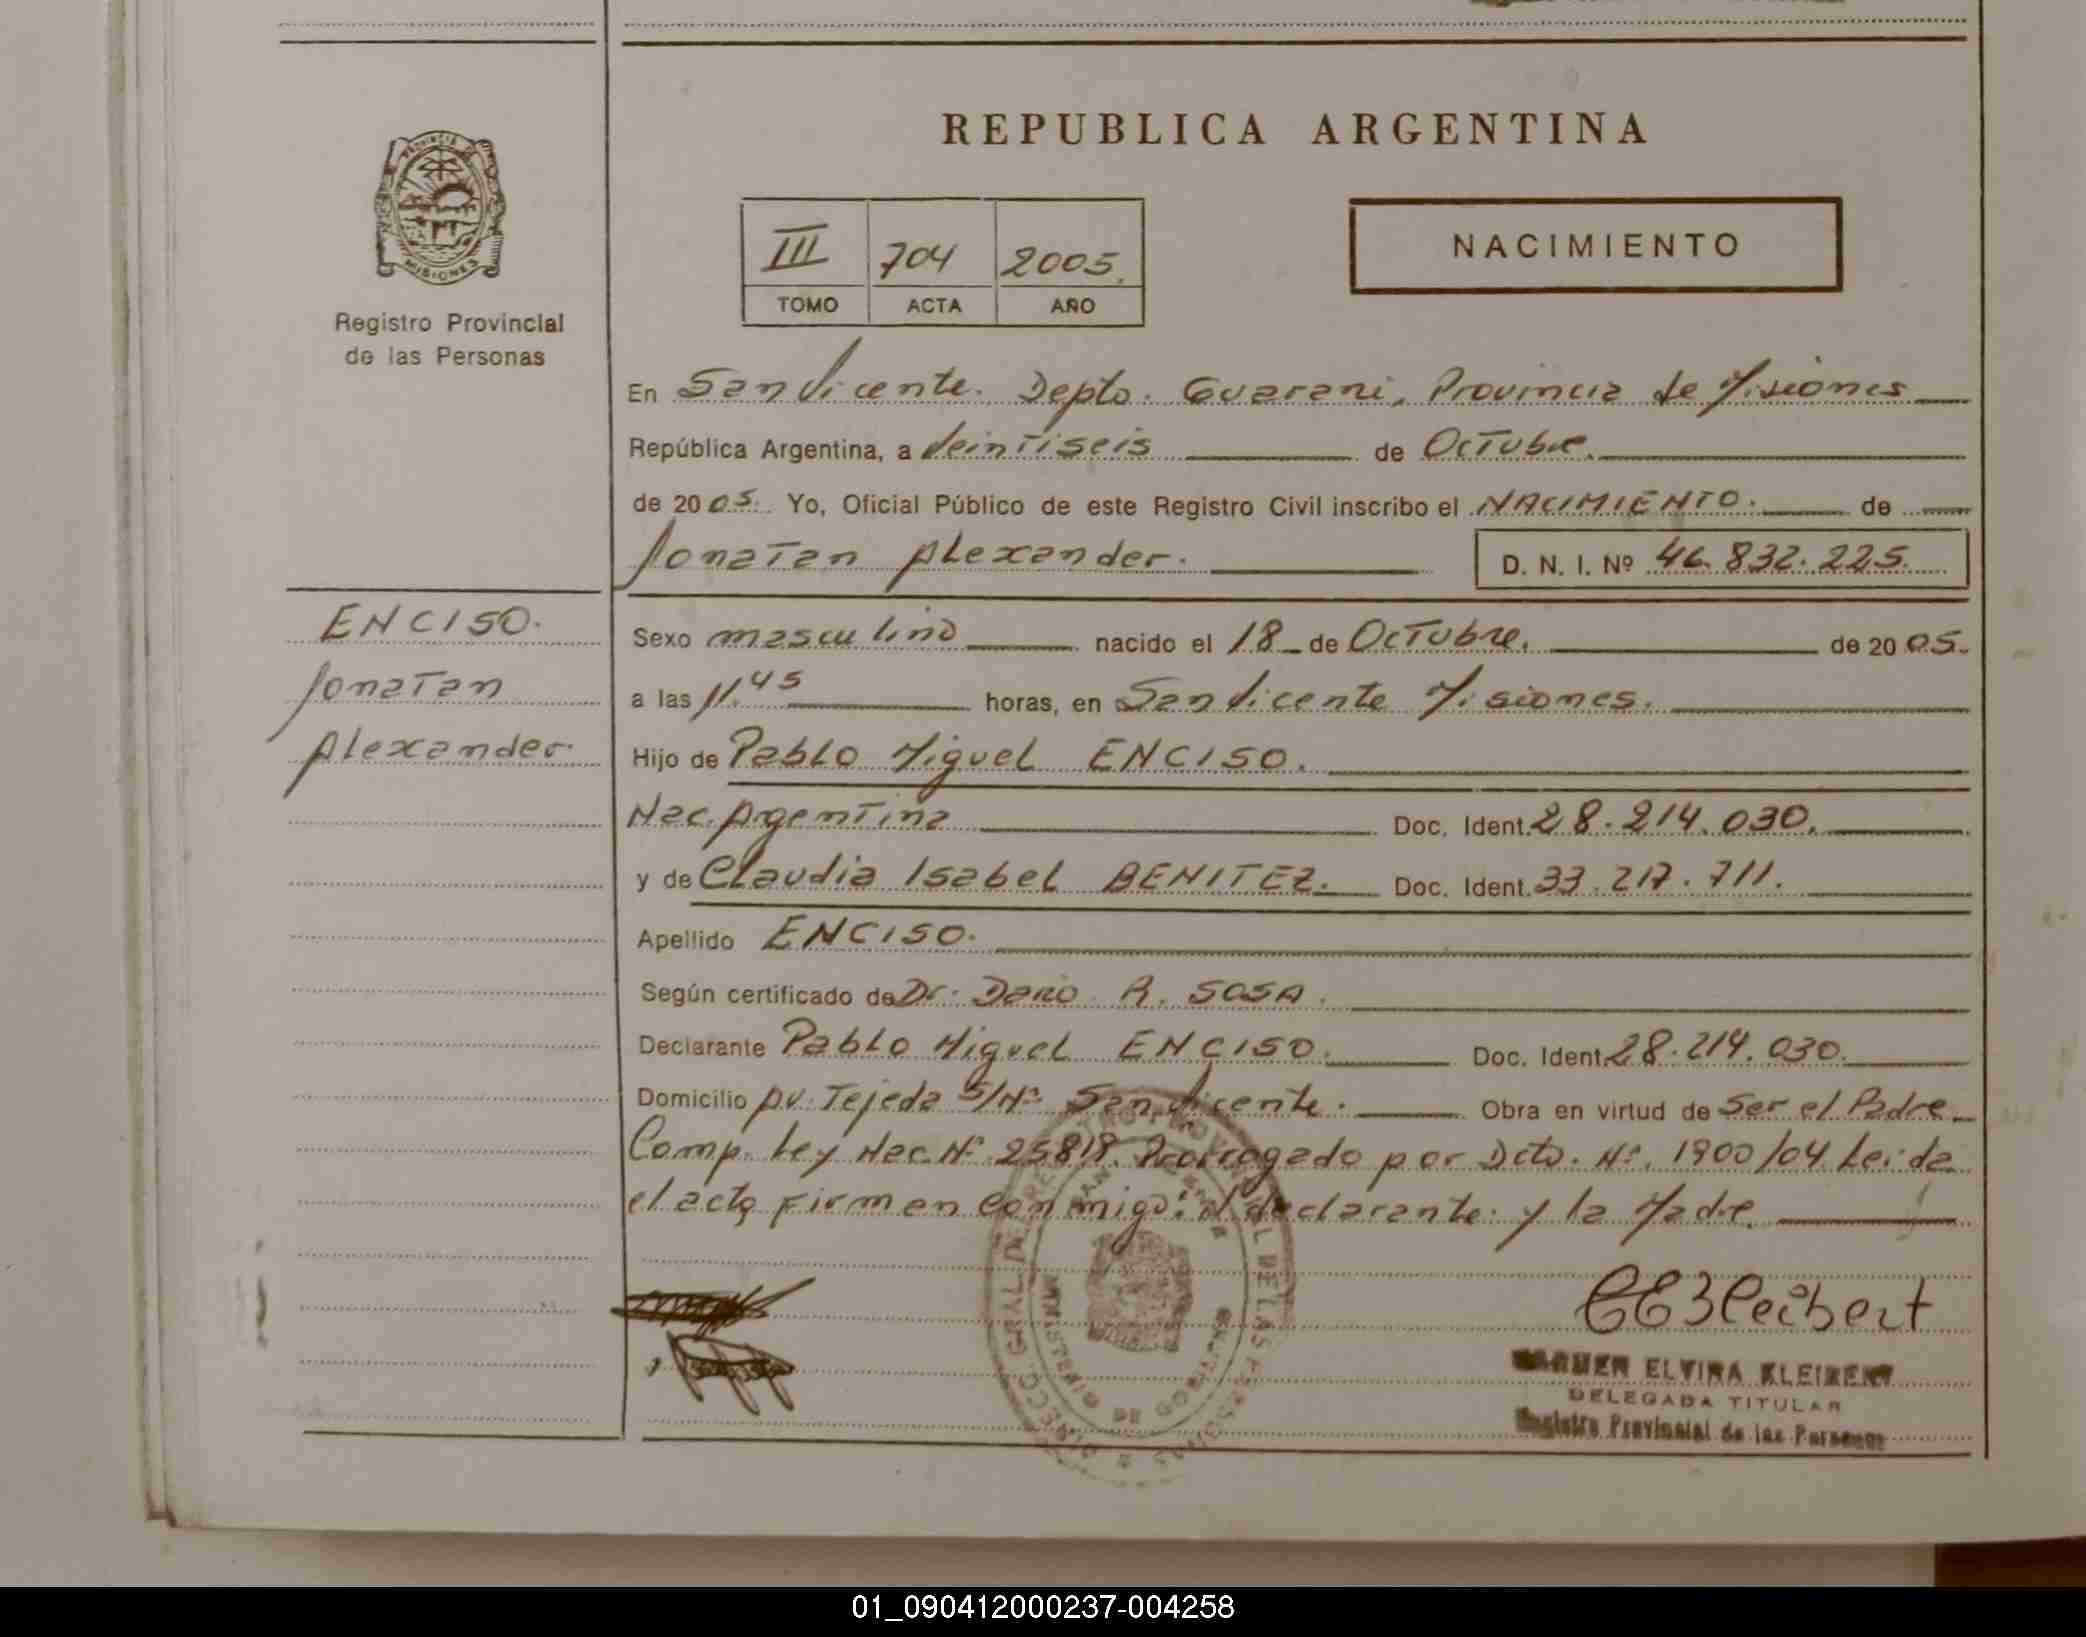 REPUBLICA ARGENTINA
PROVINCIA DE MISIONES
Registro Provincial
de las Personas
III 704 2005.
TOMO ACTA AÑO
NACIMIENTO
En San Vicente. Depto. Guarani, Provincia de Misiones
República Argentina, a Veintiseis de Octubre.
de 2005. Yo, Oficial Público de este Registro Civil inscribo el NACIMIENTO. de
Jonatan Alexander. D. N. I. Nº 46.832.225.
ENCISO.
Jonatan
Alexander.
Sexo masculino nacido el 18 de Octubre. de 2005.
a las 11.45 horas, en San Vicente Misiones.
Hijo de Pablo Miguel ENCISO.
Nac. Argentina Doc. Ident. 28.214.030.
y de Claudia Isabel BENITEZ. Doc. Ident. 33.217.711.
Apellido ENCISO.
Según certificado de Dr. Dario R. SOSA.
Declarante Pablo Miguel ENCISO. Doc. Ident. 28.214.030.
Domicilio Av. Tejeda S/Nº San Vicente. Obra en virtud de Ser el Padre
Comp. Ley Nac. Nº 25818. Prorrogado por Dcto. Nº. 1900/04 Leida
el acta Firman conmigo: el declarante y la Madre.
CEKleibert
CARMEN ELVIRA KLEIBERT
DELEGADA TITULAR
Registro Provincial de las Personas
DIRECC. GRAL. DEL REGISTRO PROVINCIAL DE LAS PERSONAS
MINISTERIO DE GOBIERNO
SAN VICENTE
01_090412000237-004258